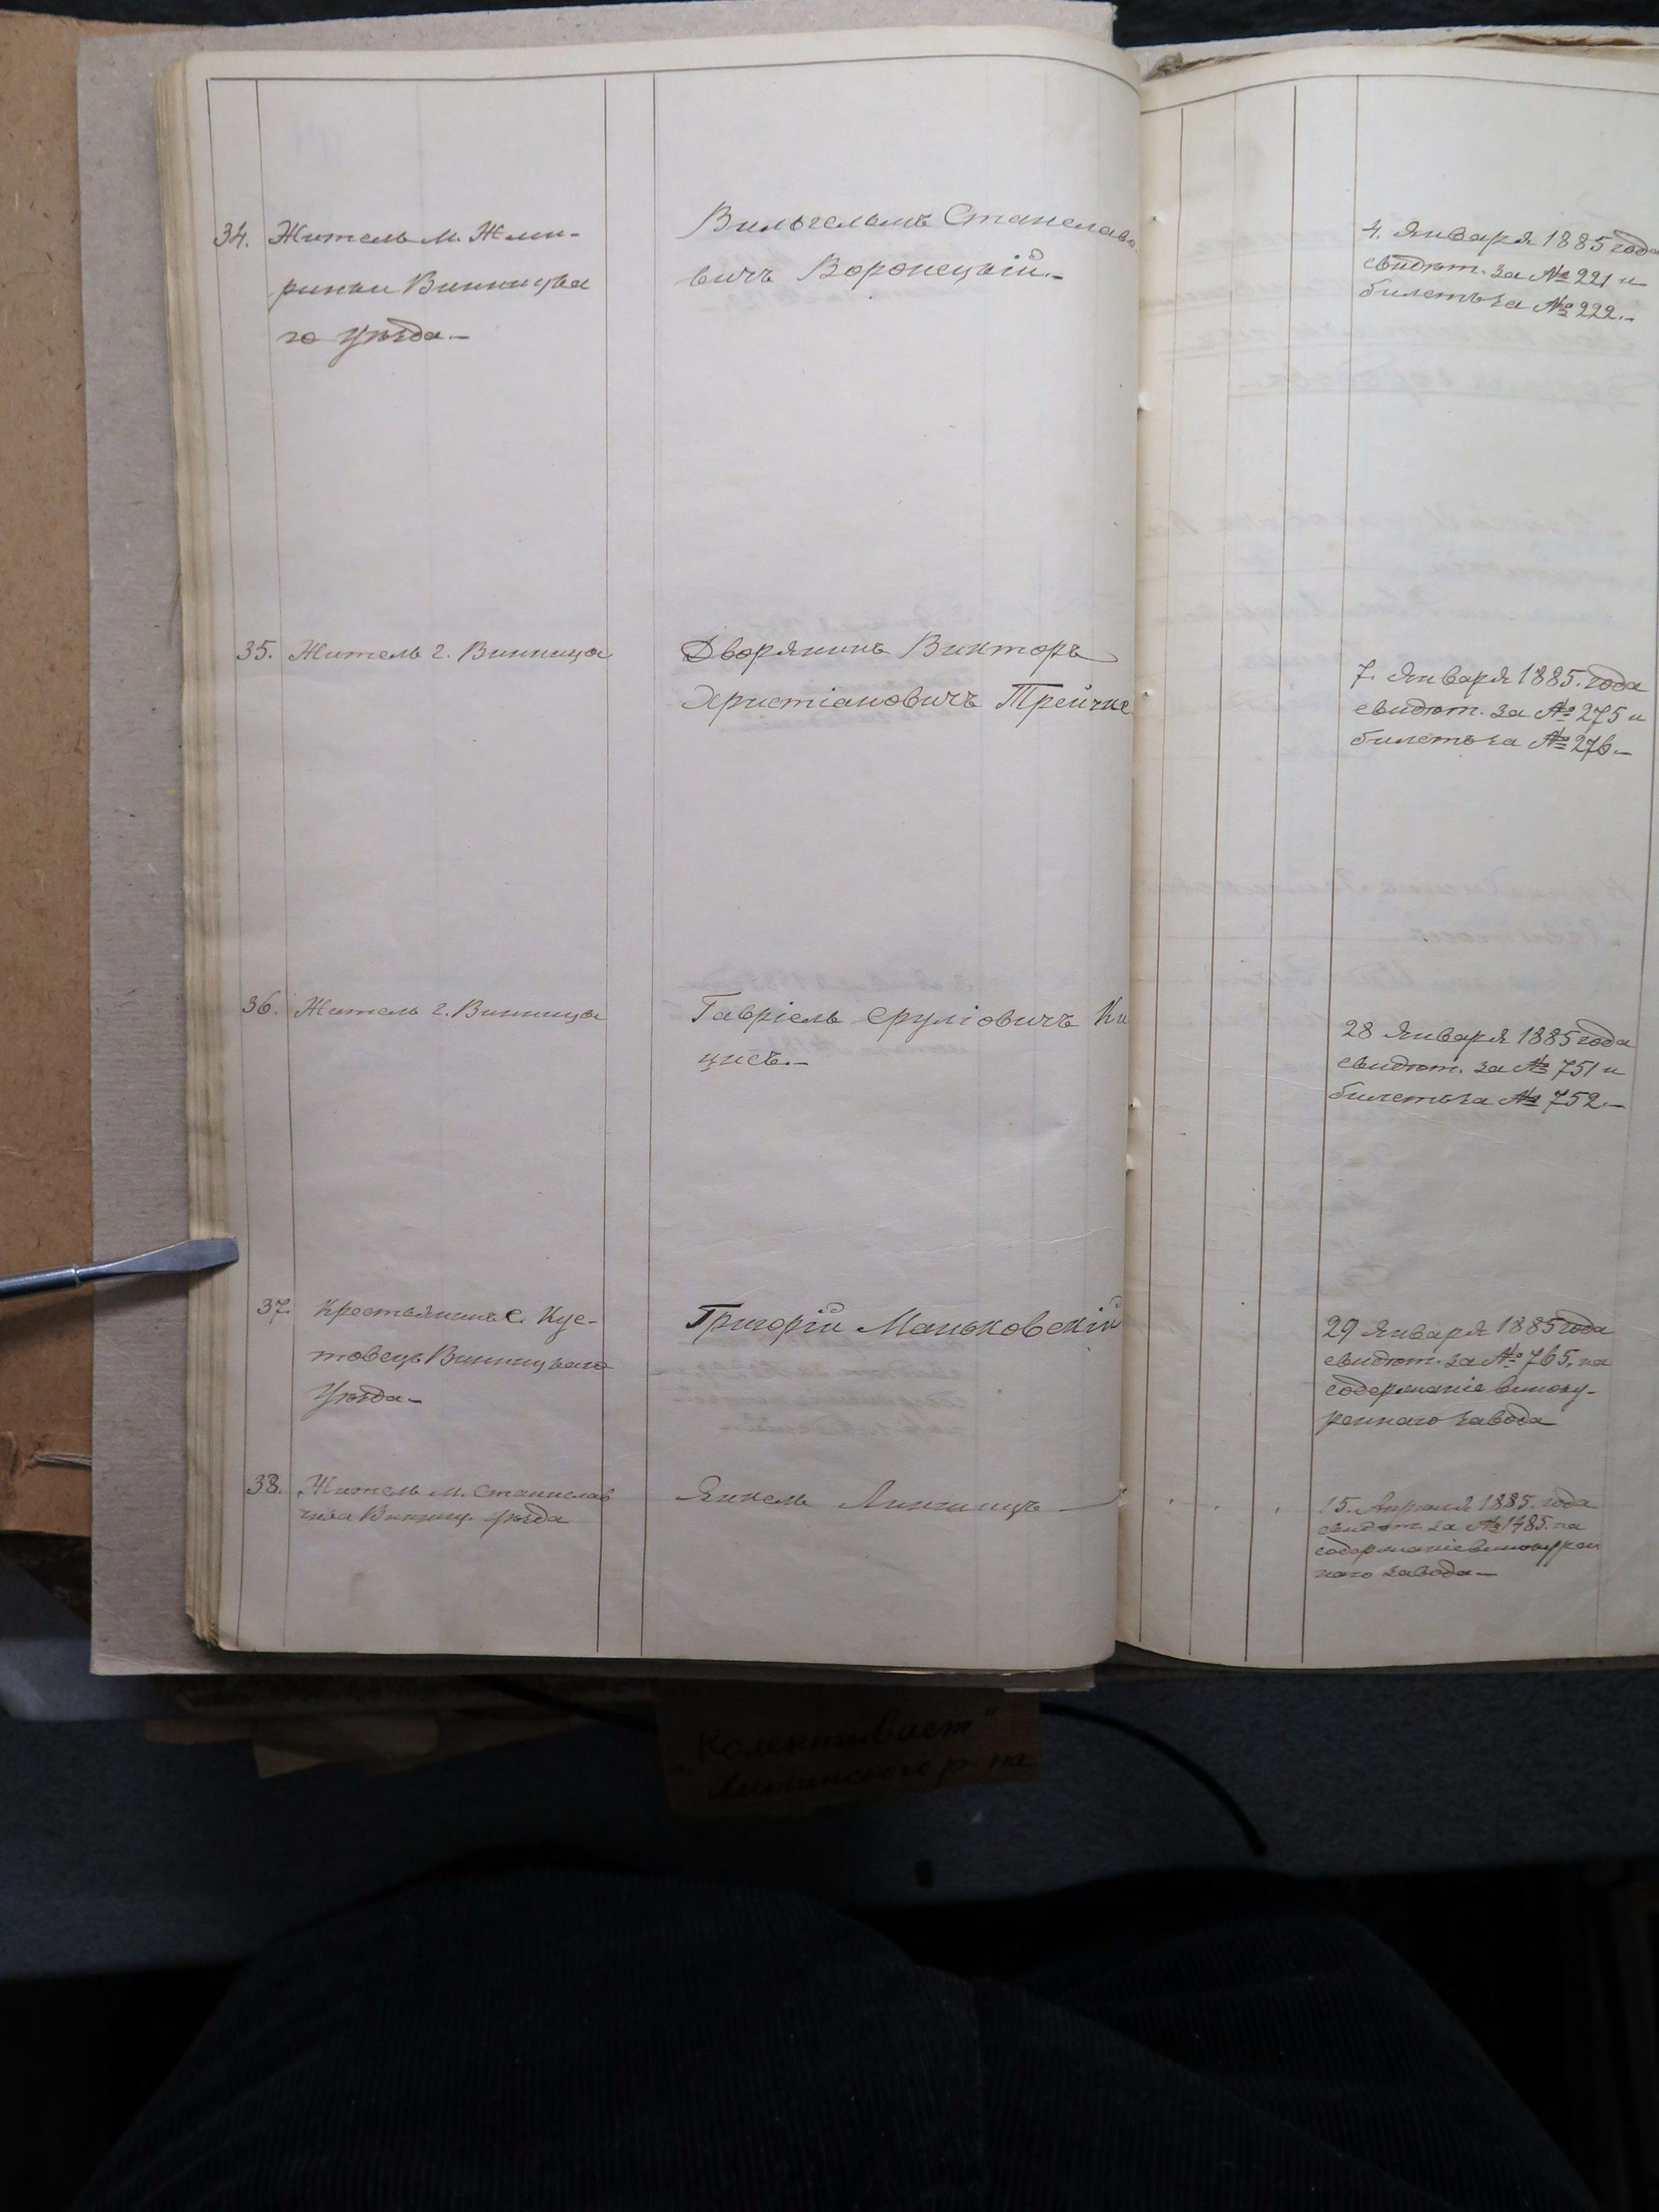 34. Житель м. Жме-
ринки Винницка
го уѣзда.—
Вильгельмъ Станеславо
вичъ Воронецкій.—
4. Января 1885 года
свидѣт. за № 221 и
билетъ за № 222.—
35. Житель г. Винницы
Дворянинъ Викторъ
Христіановичъ Трейчке
7. Января 1885. года
свидѣт. за № 275 и
билетъ за № 276.—
36. Житель г. Винницы
Гавріель Сруліовичъ Ки
цисъ.—
28 Января 1885 года
свидѣт. за № 751 и
билетъ за № 752.—
37. Крестьянинъ с. Кус-
товецъ Винницкаго
Уѣзда—
Григорій Маньковскій
29 Января 1885 года
свидѣт. за № 765. на
содержаніе виноку-
реннаго завода
38. Житель м. Станислав
чика Винниц. уѣзда
Янкель —
15. Апреля 1885. года
свидѣт за № 1485. на
содержаніе винокурен
наго завода—
"Колективист"
Литинского р-на